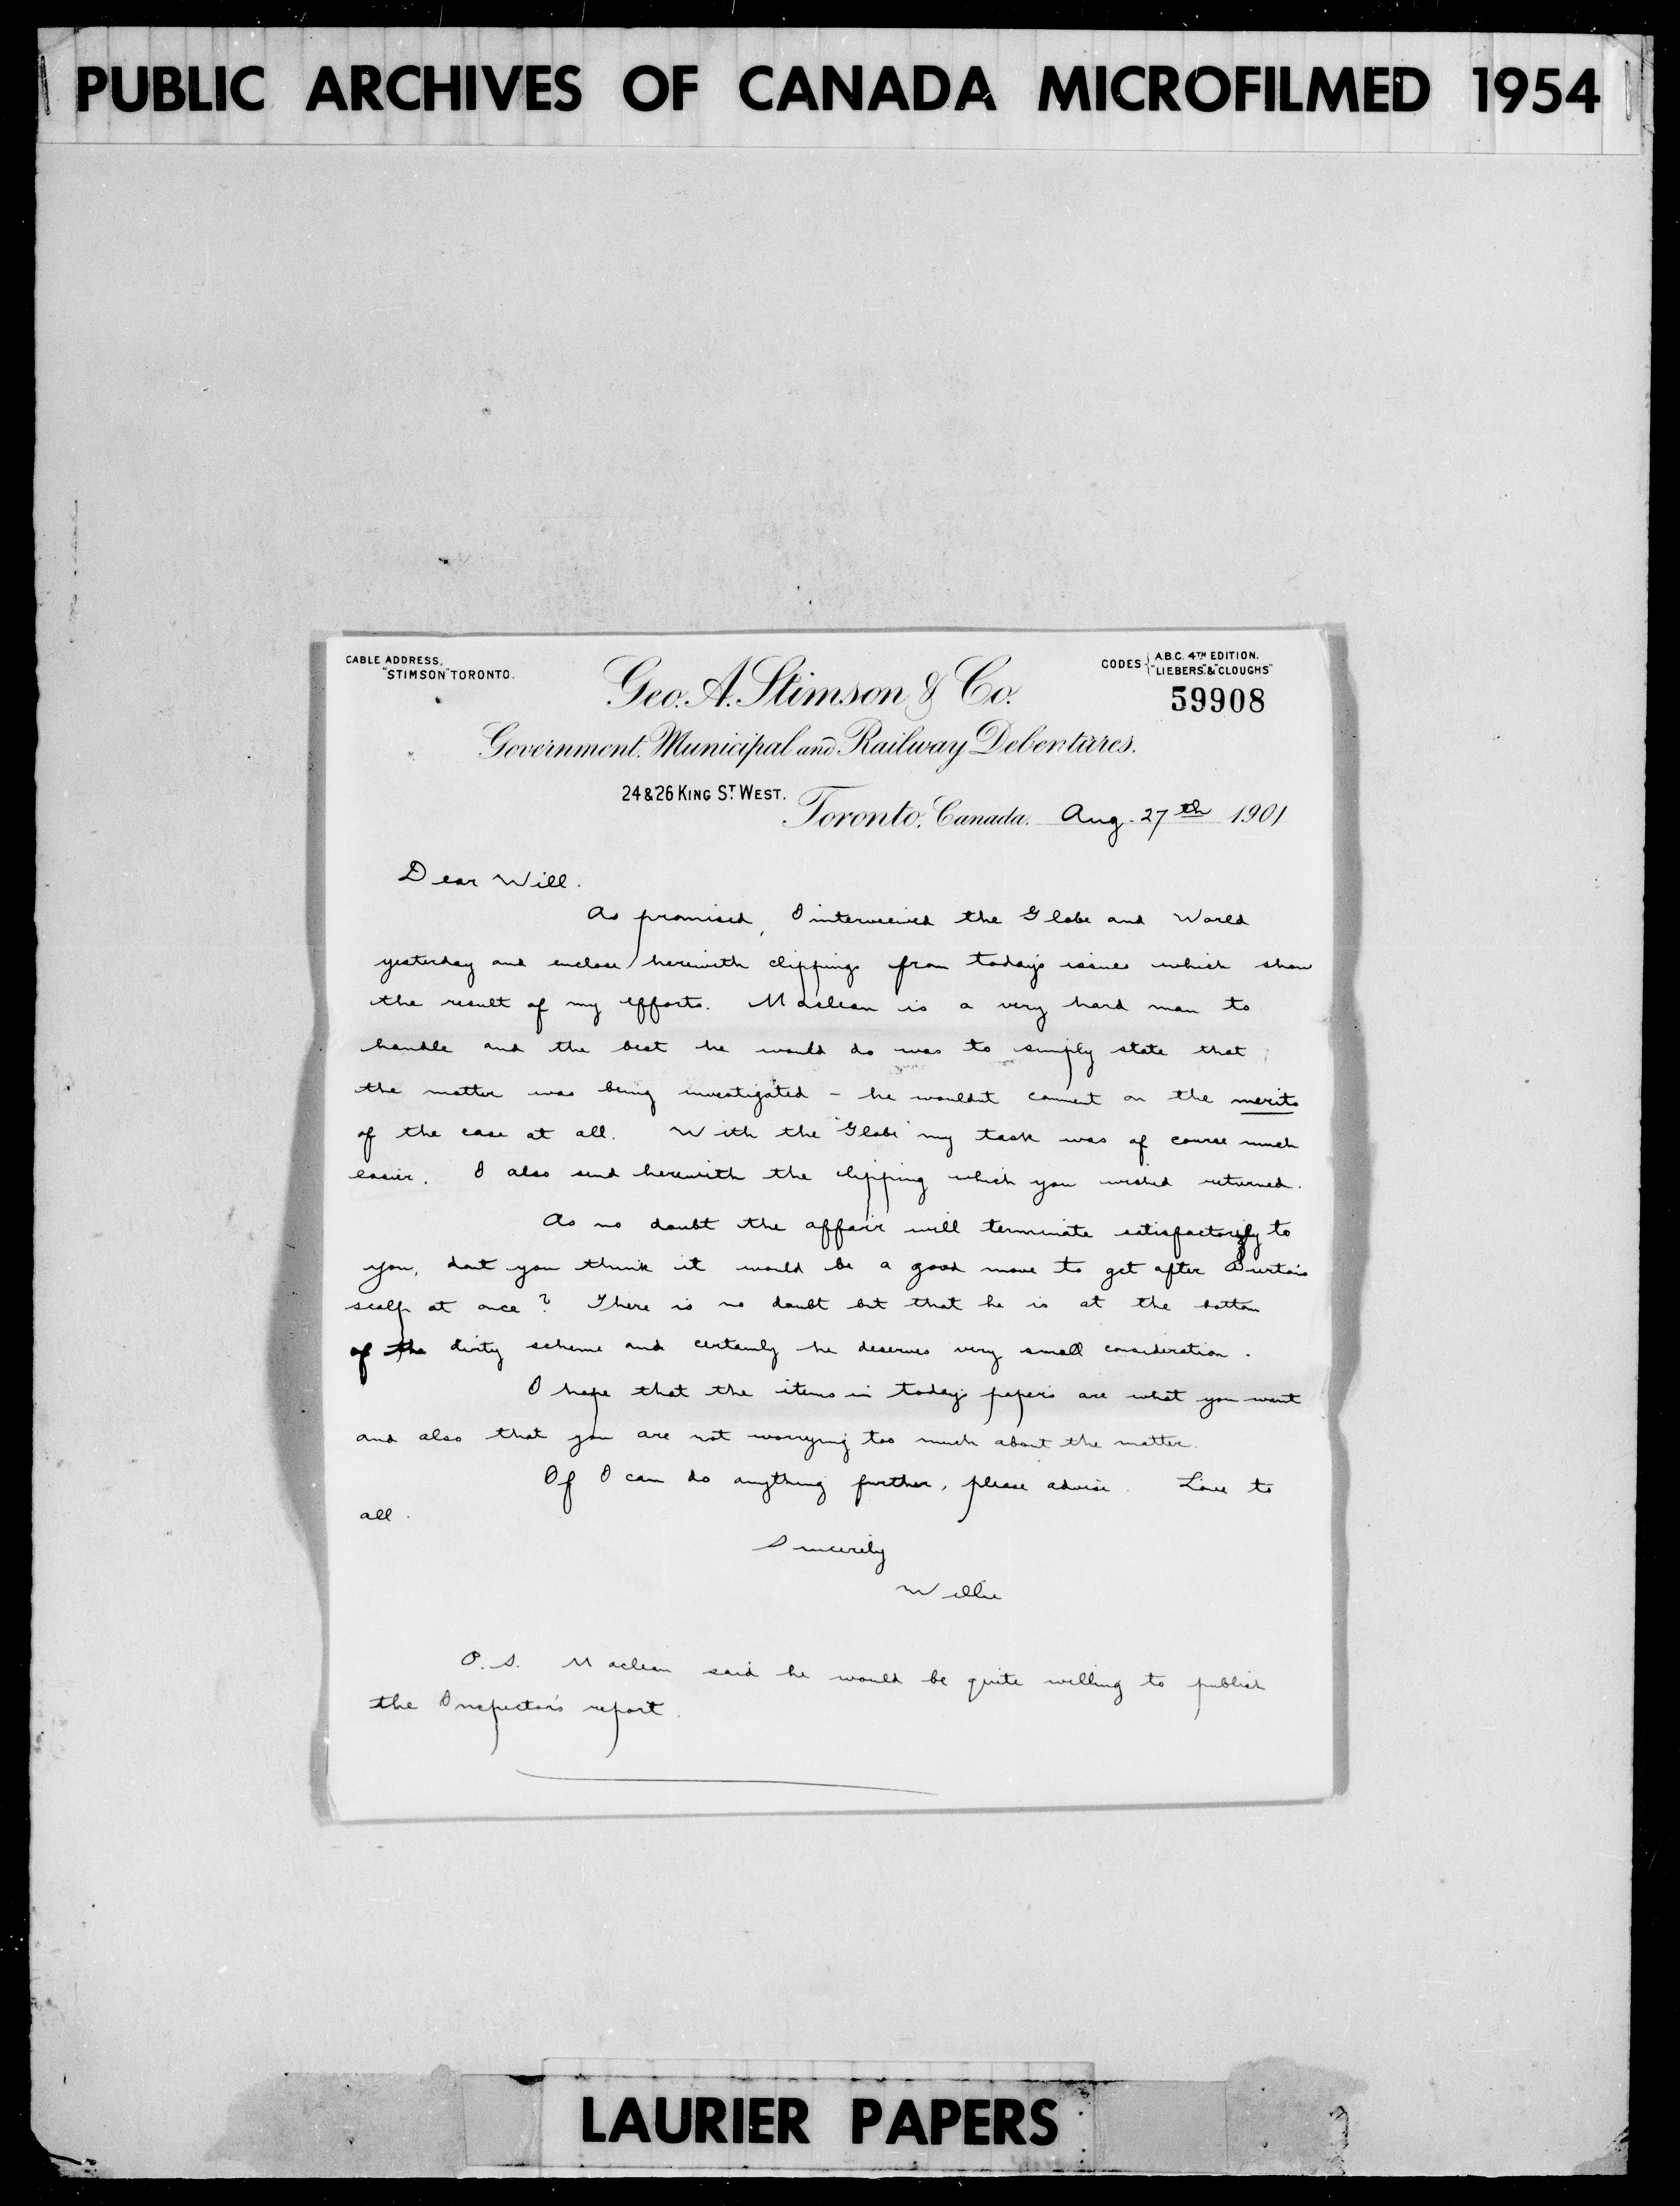 PUBLIC ARCHIVES OF CANADA MICROFILMED 1954
CABLE ADDRESS,
"STIMSON" TORONTO.
CODES { A.B.C. 4TH EDITION.
"LIEBERS" & "CLOUGHS"
59908
Geo. A. Stimson & Co.
Government, Municipal and Railway Debentures.
24 & 26 KING ST. WEST.
Toronto, Canada. Aug. 27th 1901
Dear Will.
As promised, I interviewed the Globe and World
yesterday and enclose herewith clippings from today's issues which show
the result of my efforts. Maclean is a very hard man to
handle and the best he would do was to simply state that
the matter was being investigated - he wouldnt comment on the merits
of the case at all. With the "Globe" my task was of course much
easier. I also send herewith the clipping which you wished returned.
As no doubt the affair will terminate satisfactorily to
you, dont you think it would be a good move to get after Burton's
scalp at once? There is no doubt but that he is at the bottom
of the dirty scheme and certainly he deserves very small consideration.
I hope that the items in today's papers are what you want
and also that you are not worrying too much about the matter.
If I can do anything further, please advise. Love to
all.
Sincerely
Willie
P.S. Maclean said he would be quite willing to publish
the Inspector's report.
LAURIER PAPERS